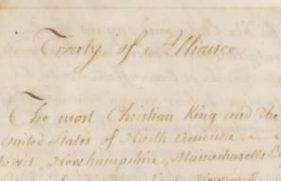 Treaty of Alliance
The most Christian King and the
United States of North America
Newhampshire, Massachusetts